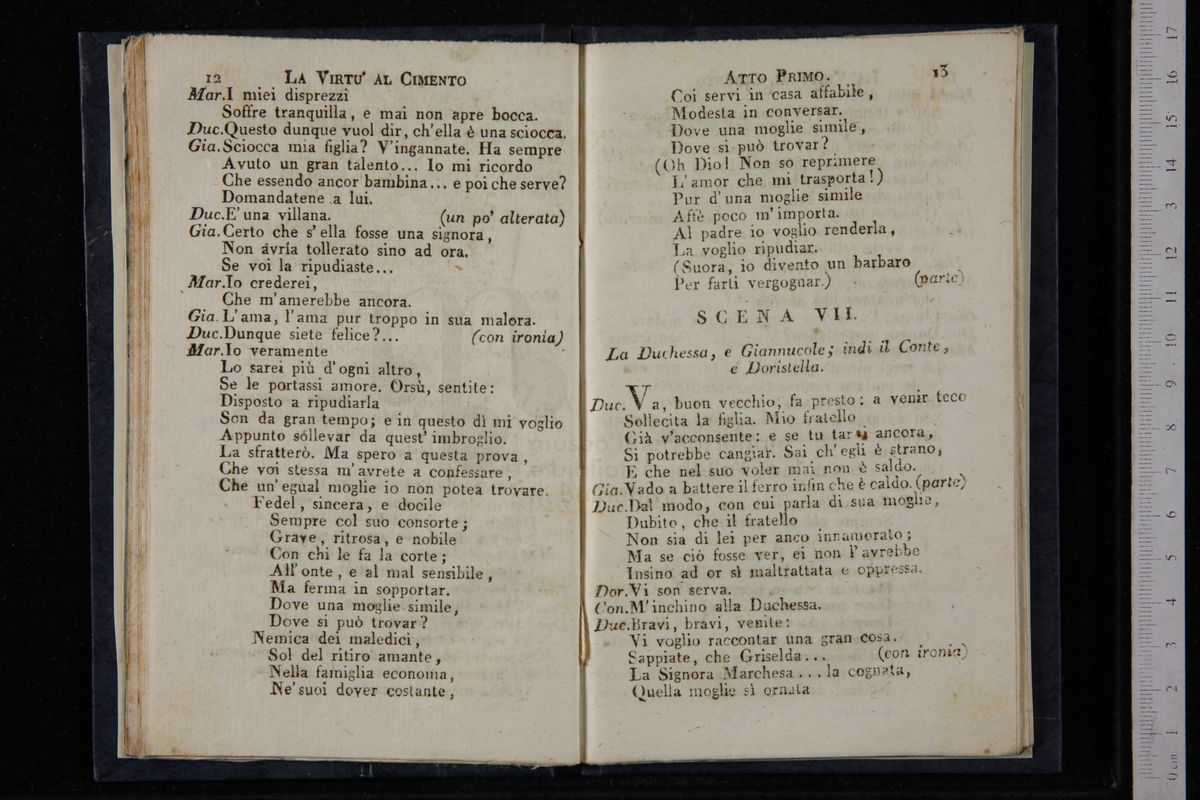 12 LA VIRTU' AL CIMENTO
Mar.I miei disprezzi
Soffre tranquilla, e mai non apre bocca.
Duc.Questo dunque vuol dir, ch'ella è una sciocca.
Gia.Sciocca mia figlia? V'ingannate. Ha sempre
Avuto un gran talento... Io mi ricordo
Che essendo ancor bambina... e poi che serve?
Domandatene a lui.
Duc.E' una villana. (un po' alterata)
Gia.Certo che s'ella fosse una signora,
Non avría tollerato sino ad ora.
Se voi la ripudiaste...
Mar.Io crederei,
Che m'amerebbe ancora.
Gia.L'ama, l'ama pur troppo in sua malora.
Duc.Dunque siete felice?... (con ironia)
Mar.Io veramente
Lo sarei più d'ogni altro,
Se le portassi amore. Orsù, sentite:
Disposto a ripudiarla
Son da gran tempo; e in questo dì mi voglio
Appunto sollevar da quest' imbroglio.
La sfratterò. Ma spero a questa prova,
Che voi stessa m'avrete a confessare,
Che un'egual moglie io non potea trovare.
Fedel, sincera, e docile
Sempre col suo consorte;
Grave, ritrosa, e nobile
Con chi le fa la corte;
All'onte, e al mal sensibile,
Ma ferma in sopportar.
Dove una moglie simile,
Dove si può trovar?
Nemica dei maledici,
Sol del ritiro amante,
Nella famiglia economa,
Ne'suoi dover costante,
ATTO PRIMO. 13
Coi servi in casa affabile,
Modesta in conversar.
Dove una moglie simile,
Dove si può trovar?
(Oh Dio! Non so reprimere
L'amor che mi trasporta!)
Pur d'una moglie simile
Affè poco m'importa.
Al padre io voglio renderla,
La voglio ripudiar.
(Suora, io divento un barbaro
Per farti vergognar.) (parte)
SCENA VII.
La Duchessa, e Giannucole; indi il Conte,
e Doristella.
Duc. Va, buon vecchio, fa presto: a venir teco
Sollecita la figlia. Mio fratello
Già v'acconsente: e se tu tar ancora,
Si potrebbe cangiar. Sai ch'egli è strano,
E che nel suo voler mai non è saldo.
Gia.Vado a battere il ferro infin che è caldo. (parte)
Duc.Dal modo, con cui parla di sua moglie,
Dubito, che il fratello
Non sia di lei per anco innamorato;
Ma se ciò fosse ver, ei non l'avrebbe
Insino ad or sì maltrattata e oppressa.
Dor.Vi son serva.
Con.M'inchino alla Duchessa.
Duc.Bravi, bravi, venite:
Vi voglio raccontar una gran cosa.
Sappiate, che Griselda... (con ironia)
La Signora Marchesa...la cognata,
Quella moglie sì ornata